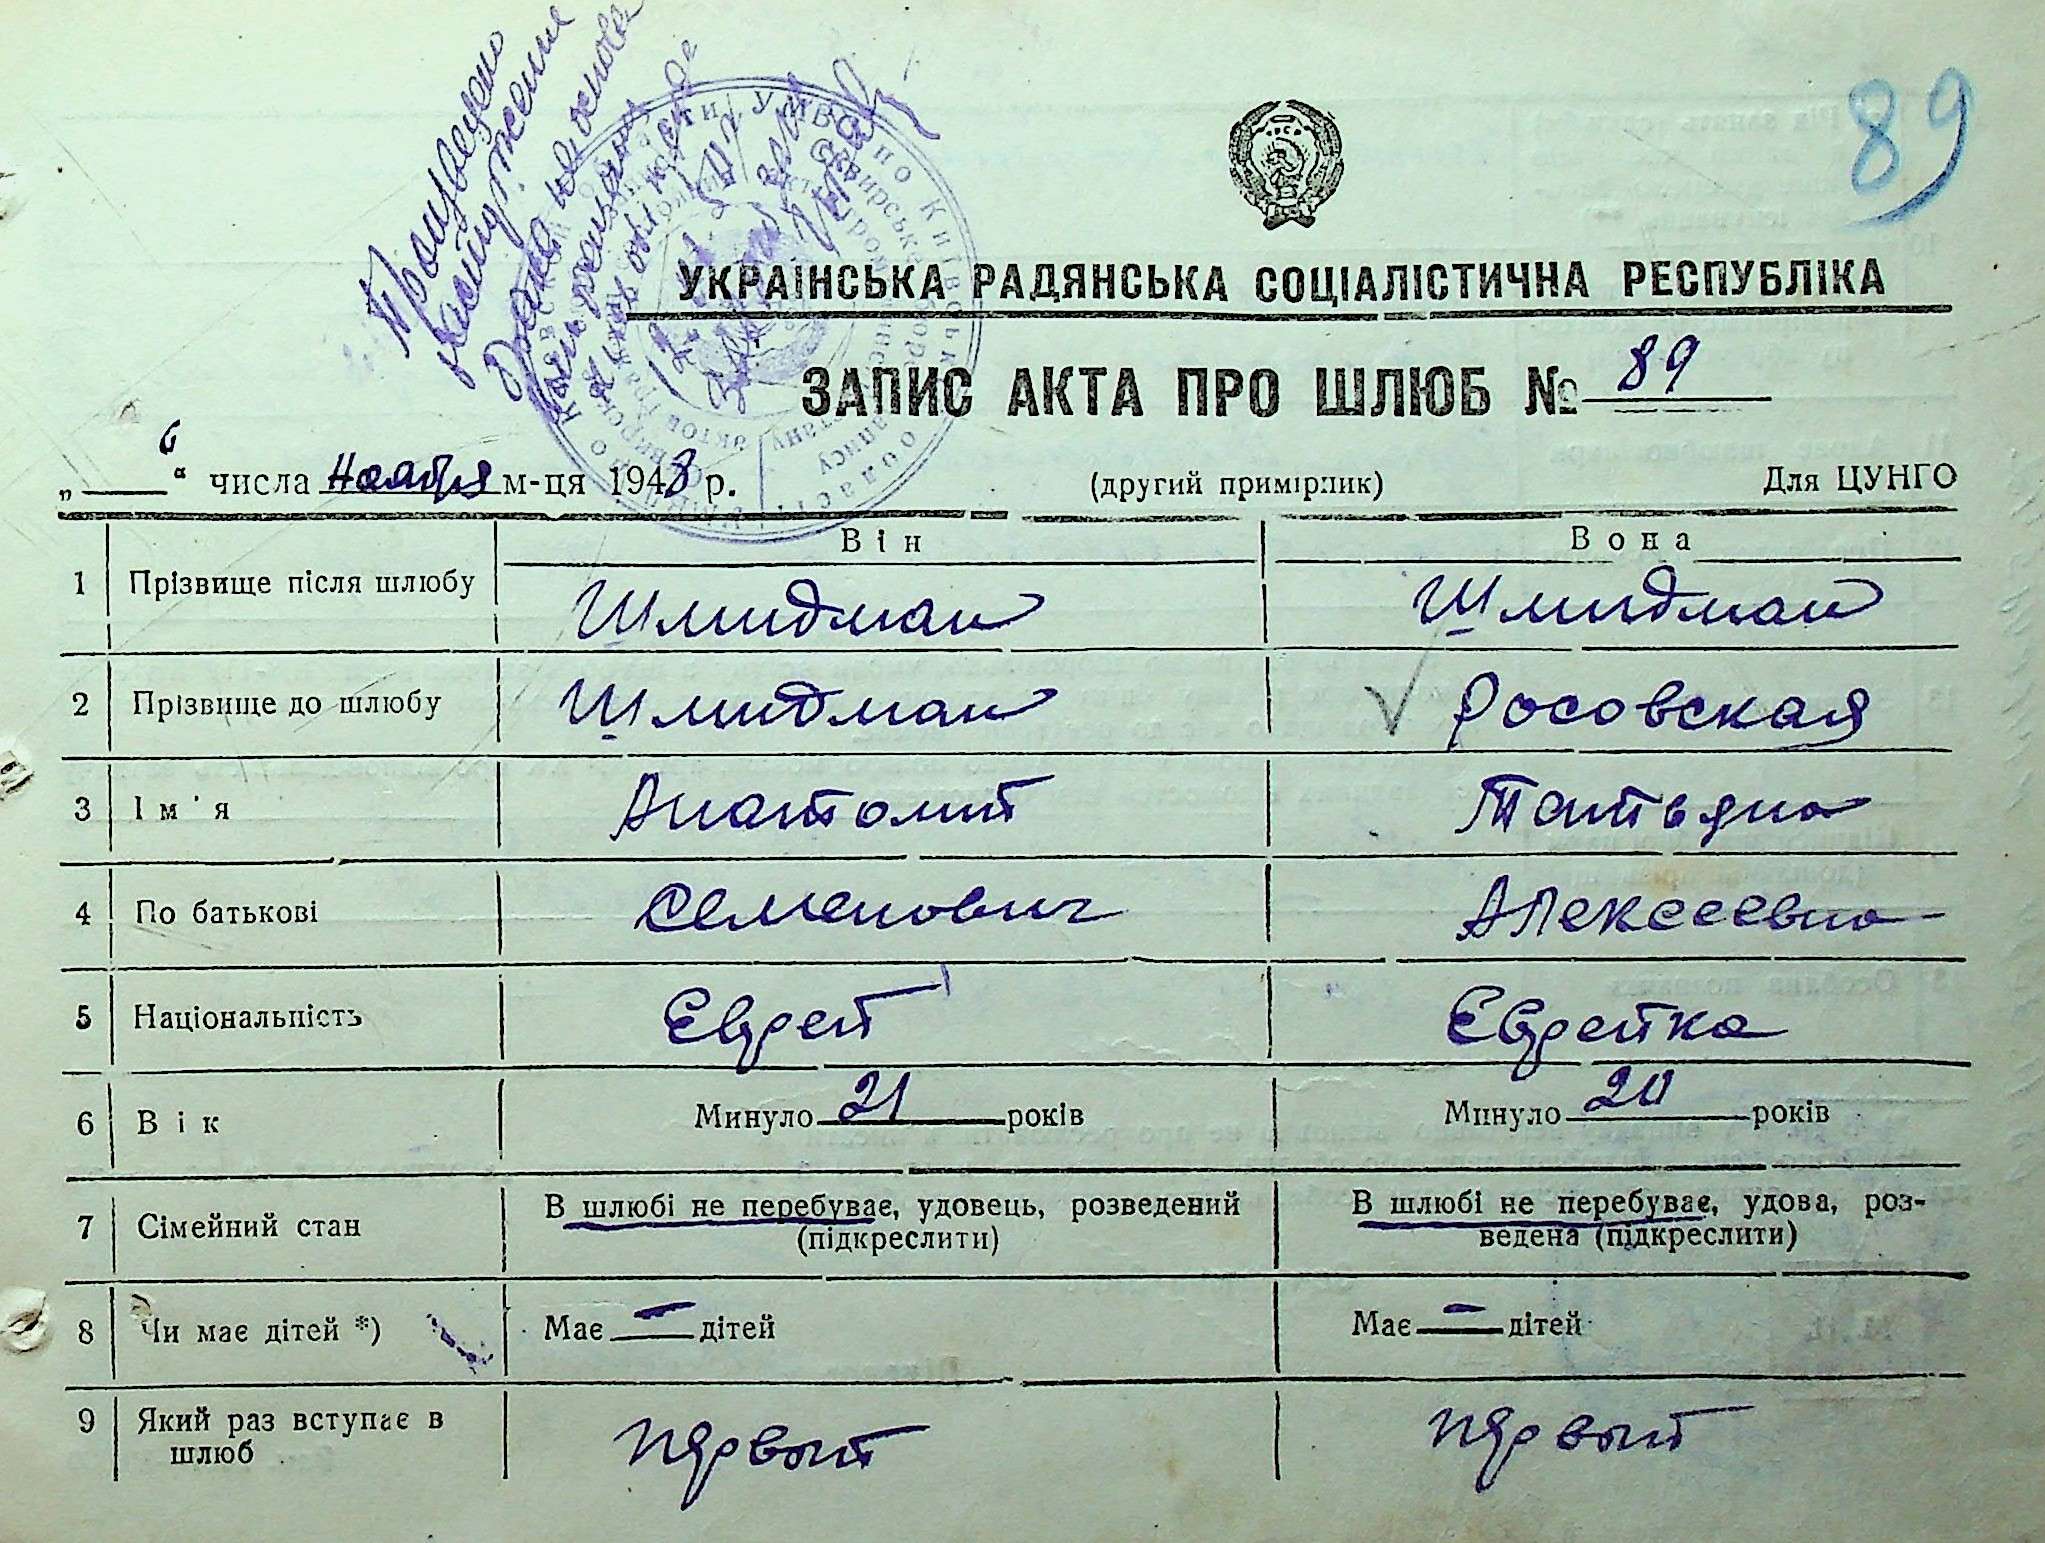 Произведено
расторжение
брака на основа
89
УКРАЇНСЬКА РАДЯНСЬКА СОЦІАЛІСТИЧНА РЕСПУБЛІКА
ЗАПИС АКТА ПРО ШЛЮБ № 89
„ 6 “ числа ноября м-ця 1948 р. (другий примірник) Для ЦУНГО
Він Вона
1 Прізвище після шлюбу Шмидман Шмидман
2 Прізвище до шлюбу Шмидман Росовская
3 Ім'я Анатолий Татьяна
4 По батькові Семенович Алексеевна
5 Національність Еврей Еврейка
6 Вік Минуло 21 років Минуло 20 років
7 Сімейний стан В шлюбі не перебуває, удовець, розведений В шлюбі не перебуває, удова, роз-
(підкреслити) ведена (підкреслити)
8 Чи має дітей *) Має — дітей Має — дітей
9 Який раз вступає в первый первый
шлюб